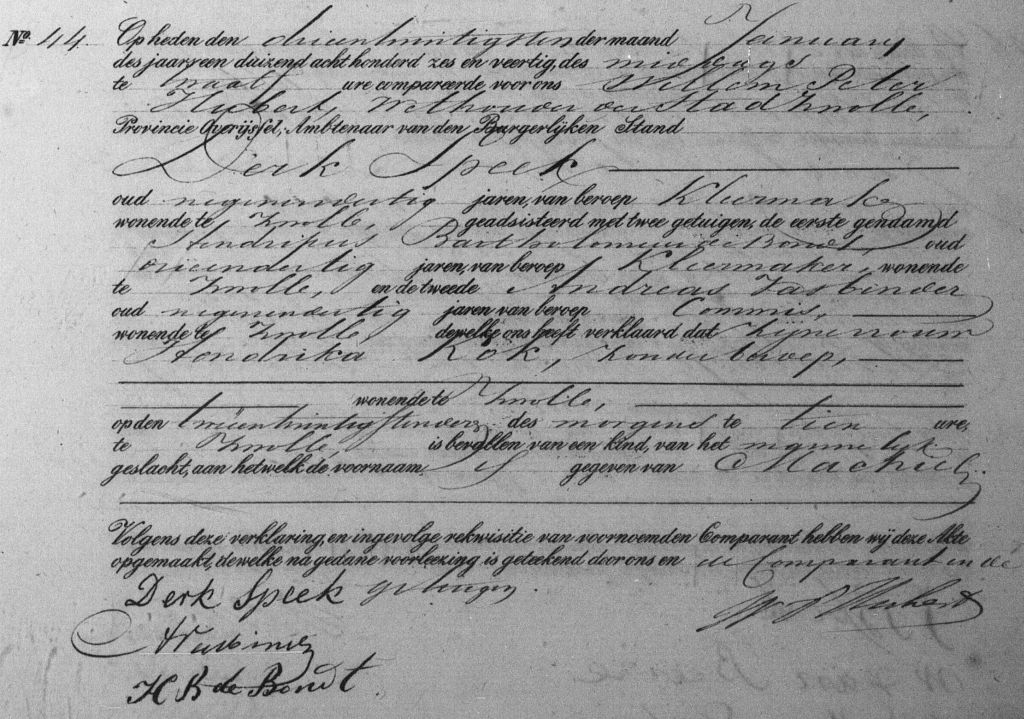 No. 44 Op heden den drieentwintigsten der maand January
des jaars een duizend acht honderd zes en veertig, des middags
te twaalf ure compareerde voor ons Willem Peter
Hubert, Wethouder der Stad Zwolle,
Provincie Overijssel, Ambtenaar van den Burgerlijken Stand
Derk Speek
oud negenendertig jaren, van beroep Kleermaker
wonende te Zwolle, geadsisteerd met twee getuigen, de eerste genaamd
Hendrikus Bartholomeus de Bondt, oud
drieendertig jaren, van beroep Kleermaker, wonende
te Zwolle, en de tweede Andreas Vasbinder
oud negenendertig jaren van beroep Commis,
wonende te Zwolle, dewelke ons heeft verklaard dat Zijne vrouw
Hendrika Kok, zonder beroep,
wonende te Zwolle,
op den tweeentwintigsten dezer des morgens te tien ure,
te Zwolle, is bevallen van een kind, van het mannelijk
geslacht, aan hetwelk de voornaam is gegeven van Machiel
Volgens deze verklaring, en ingevolge rekwisitie van voornoemden Comparant hebben wij deze Akte
opgemaakt, dewelke na gedane voorlezing is geteekend door ons en de Comparant en de
Derk Speek getuigen.
W P Hubert
AVasbinder
H B de Bondt.